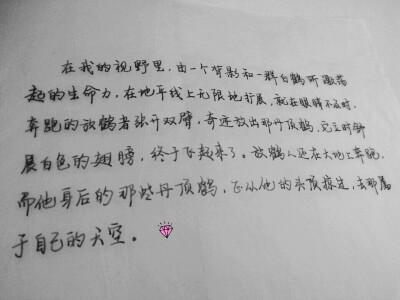 在我的视野里，由一个背影和一群白鹤所激荡
起的生命力，在地平线上无限地扩展，就在眼睛不及时，
奔跑的放鹤者张开双臂，奇迹放出那丹顶鹤，它立时舒
展白色的翅膀，终于飞起来了。放鹤人还在大地上奔跑，
而他身后的那些丹顶鹤，正从他的头顶掠过，去那属
于自己的天空。